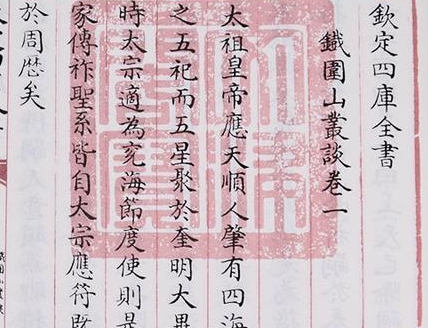 欽定四庫全書
鐵圍山叢談卷一
太祖皇帝應天順人肇有四海
之五祀而五星聚於奎明大異
時太宗適為兗海節度使則是
家傳祚聖系皆自太宗應符既
於周厯矣